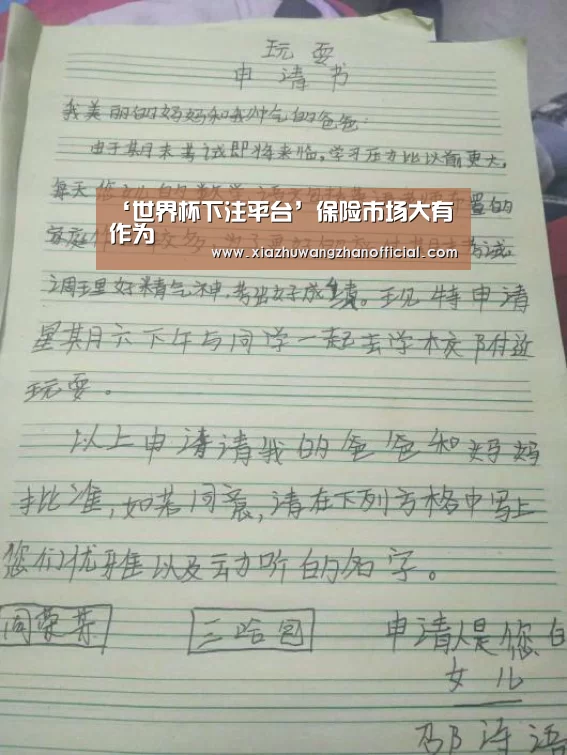 玩耍
申请书
我美丽的妈妈和我帅气的爸爸:
由于其月末考试即将来临,学习压力比以前更大,
每天
置的
‘世界杯下注平台’保险市场大有
作为
www.xiazhuwangzhanofficial.com
家庭
考试
调理好精气神,考出好成绩。现特申请
星其月六下午与同学一起去学校附近
玩耍。
以上申请请我的爸爸和妈妈
批准,如若同意,请在下列方格中写上
您们优雅以及动听的名字。
三哈包
申请人是您白
女儿